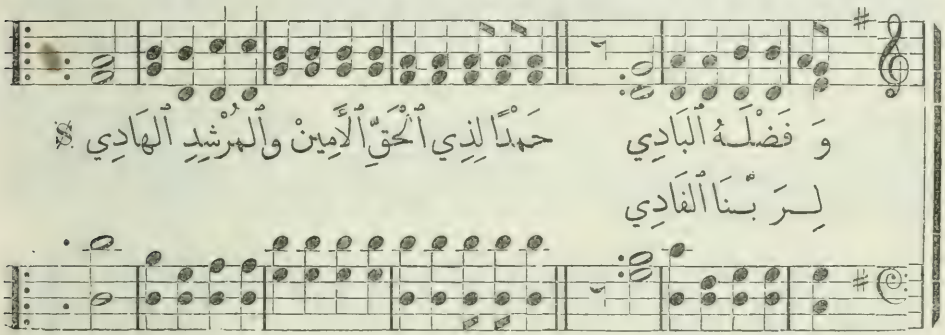 وَ فَضْلَهُ ٱلْبَادِي حَمْدًا لِذِي ٱلْحَقِّ ٱلْأَمِينْ وٱلْمُرْشِدِ ٱلْهَادِي
لِرَبِّنَا ٱلْفَادِي